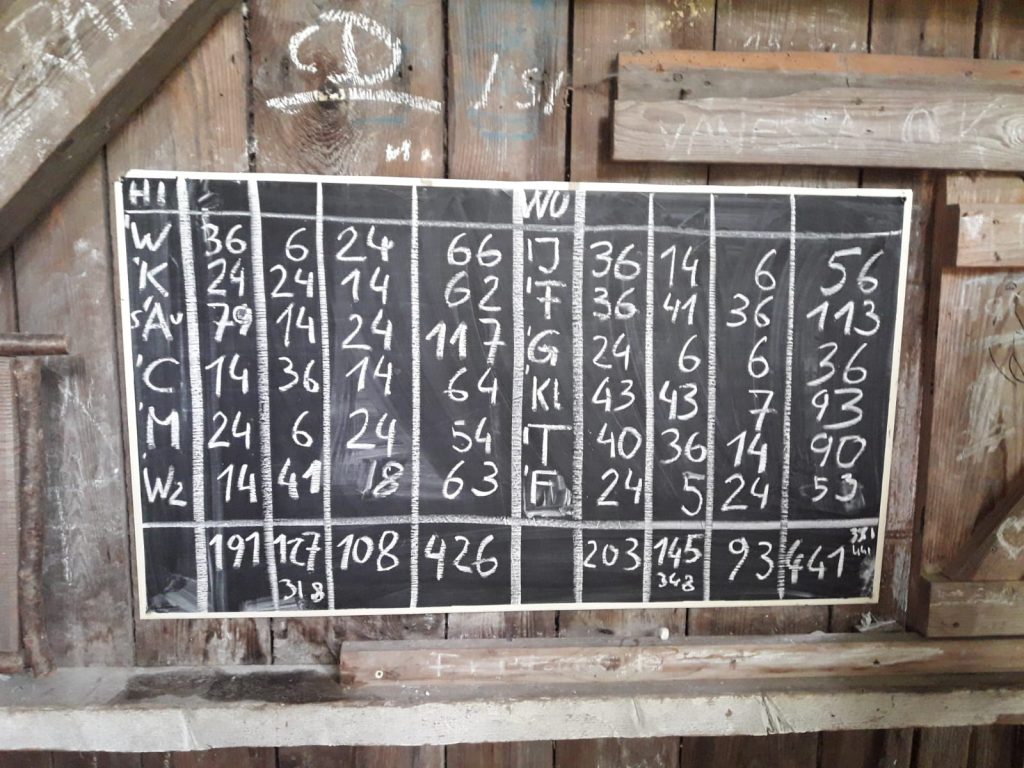 Φ
151
HI WO
'W 36 6 24 66 'J 36 14 6 56
'K 24 24 14 62 '7 36 41 36 113
SÄU 79 14 24 117 'G 24 6 6 36
'C 14 36 14 64 'Kl 43 43 7 93
'M 24 6 24 54 'T 40 36 14 90
'W2 14 41 8 63 'F 24 5 24 53
191 127 108 426 203 145 93 441
318 348 441